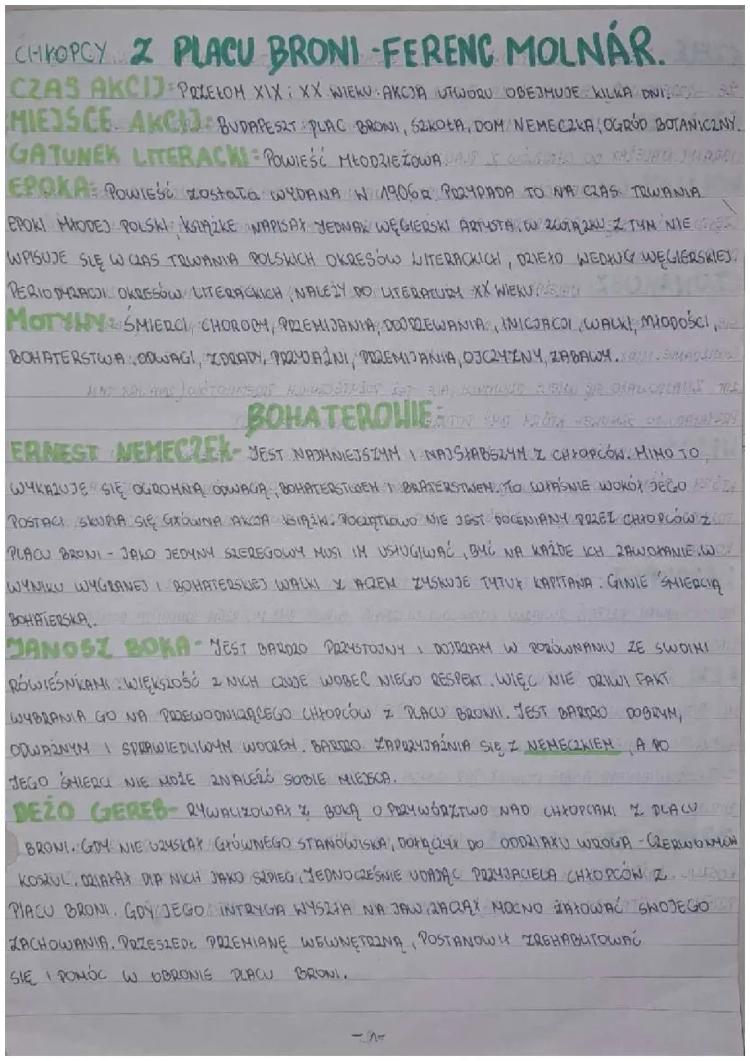 CHŁOPCY Z PLACU BRONI - FERENC MOLNÁR.
CZAS AKCJI: PRZEŁOM XIX i XX WIEKU. AKCJA UTWORU OBEJMUJE KILKA DNI.
MIEJSCE AKCJI: BUDAPESZT: PLAC BRONI, SZKOŁA, DOM NEMECZKA, OGRÓD BOTANICZNY.
GATUNEK LITERACKI: POWIEŚĆ MŁODZIEŻOWA
EPOKA: POWIEŚĆ ZOSTAŁA WYDANA W 1906R. PRZYPADA TO NA CZAS TRWANIA
EPOKI MŁODEJ POLSKI. KSIĄŻKE NAPISAŁ JEDNAK WĘGIERSKI ARTYSTA, W ZWIĄZKU Z TYM NIE
WPISUJE SIĘ W CZAS TRWANIA POLSKICH OKRESÓW LITERACKICH, DZIEŁO WEDŁUG WĘGIERSKIEJ
PERIODYZACJI OKRESÓW LITERACKICH, NALEŻY DO LITERATURY XX WIEKU.
MOTYWY: ŚMIERCI, CHOROBY, PRZEMIJANIA, DOJRZEWANIA, INICJACJI, WALKI, MŁODOŚCI,
BOHATERSTWA, ODWAGI, ZDRADY, PRZYJAŹNI, PRZEMIJANIA, OJCZYZNY, ZABAWY.
BOHATEROWIE:
ERNEST NEMECZEK- JEST NAJMNIEJSZYM I NAJSŁABSZYM Z CHŁOPCÓW. MIMO TO
WYKAZUJĘ SIĘ OGROMNĄ ODWAGĄ, BOHATERSTWEM I BRATERSTWEM. TO WŁAŚNIE WOKÓŁ JEGO
POSTACI SKUPIA SIĘ GŁÓWNA AKCJA KSIĄŻKI. POCZĄTKOWO NIE JEST DOCENIANY PRZEZ CHŁOPCÓW Z
PLACU BRONI - JAKO JEDYNY SZEREGOWY MUSI IM USŁUGIWAĆ, BYĆ NA KAŻDE ICH ZAWOŁANIE. W
WYNIKU WYGRANEJ I BOHATERSKIEJ WALKI Z ACZEM ZYSKUJE TYTUŁ KAPITANA. GINIE ŚMIERCIĄ
BOHATERSKĄ.
JANOSZ BOKA- JEST BARDZO PRZYSTOJNY I DOJRZAŁY W PORÓWNANIU ZE SWOIMI
RÓWIEŚNIKAMI. WIĘKSZOŚĆ Z NICH CZUJE WOBEC NIEGO RESPEKT, WIĘC NIE DZIWI FAKT
WYBRANIA GO NA PRZEWODNICZĄCEGO CHŁOPCÓW Z PLACU BRONI. JEST BARDZO DOBRYM,
ODWAŻNYM I SPRAWIEDLIWYM WODZEM. BARDZO ZAPRZYJAŹNIA SIĘ Z NEMECZKIEM, A PO
JEGO ŚMIERCI NIE MOŻE ZNALEŹĆ SOBIE MIEJSCA.
DEŻO GEREB- RYWALIZOWAŁ Z BOKĄ O PRZYWÓDZTWO NAD CHŁOPCAMI Z PLACU
BRONI. GDY NIE UZYSKAŁ GŁÓWNEGO STANOWISKA, DOŁĄCZYŁ DO ODDZIAŁU WROGA - CZERWONYCH
KOSZUL. DZIAŁAŁ DLA NICH JAKO SZPIEG, JEDNOCZEŚNIE UDAJĄC PRZYJACIELA CHŁOPCÓW Z
PLACU BRONI. GDY JEGO INTRYGA WYSZŁA NA JAW, ZACZĄŁ MOCNO ŻAŁOWAĆ SWOJEGO
ZACHOWANIA. PRZESZEDŁ PRZEMIANĘ WEWNĘTRZNĄ, POSTANOWIŁ ZREHABILITOWAĆ
SIĘ I POMÓC W OBRONIE PLACU BRONI.
-1-